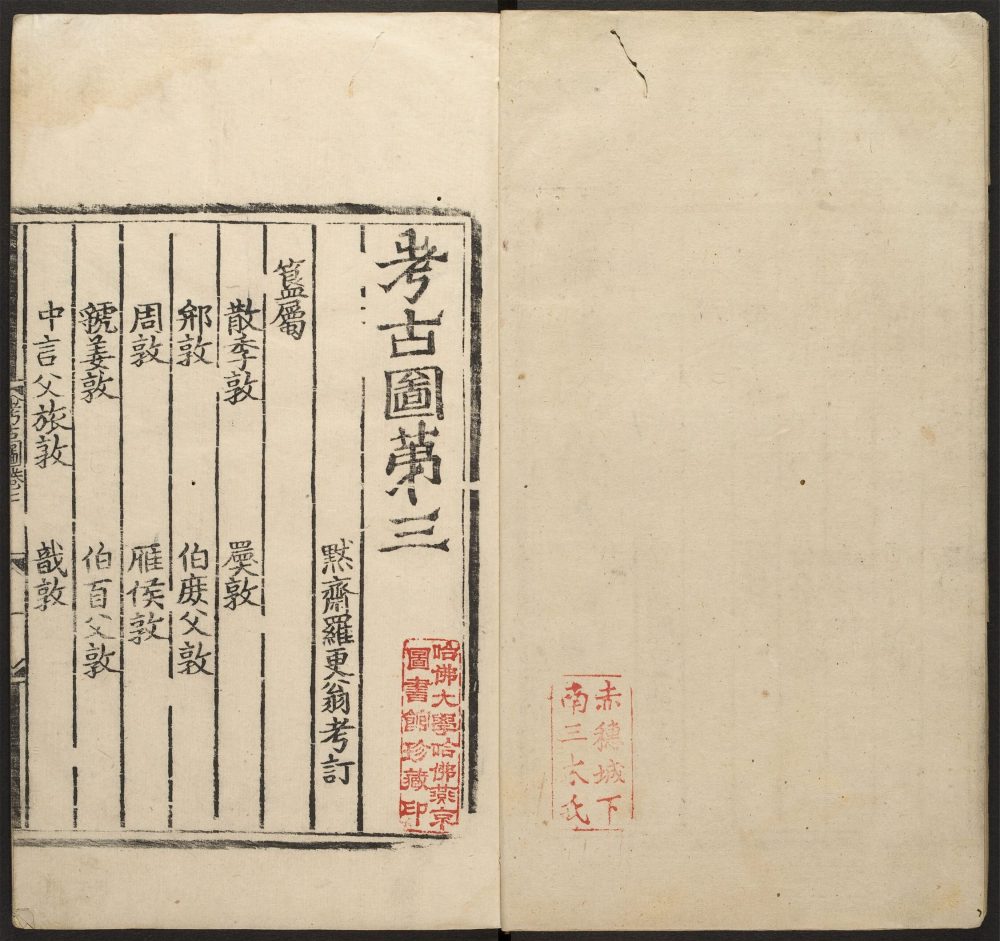 赤穗城下
南三木氏
考古圖苐三
哈佛大學哈佛燕京
圖書館珍藏印
默齋羅更翁考訂
簋屬
散季敦 㠱敦
䢵敦 伯庶父敦
周敦 雁侯敦
虢姜敦 伯百父敦
中言父旅敦 戠敦
考古圖卷三